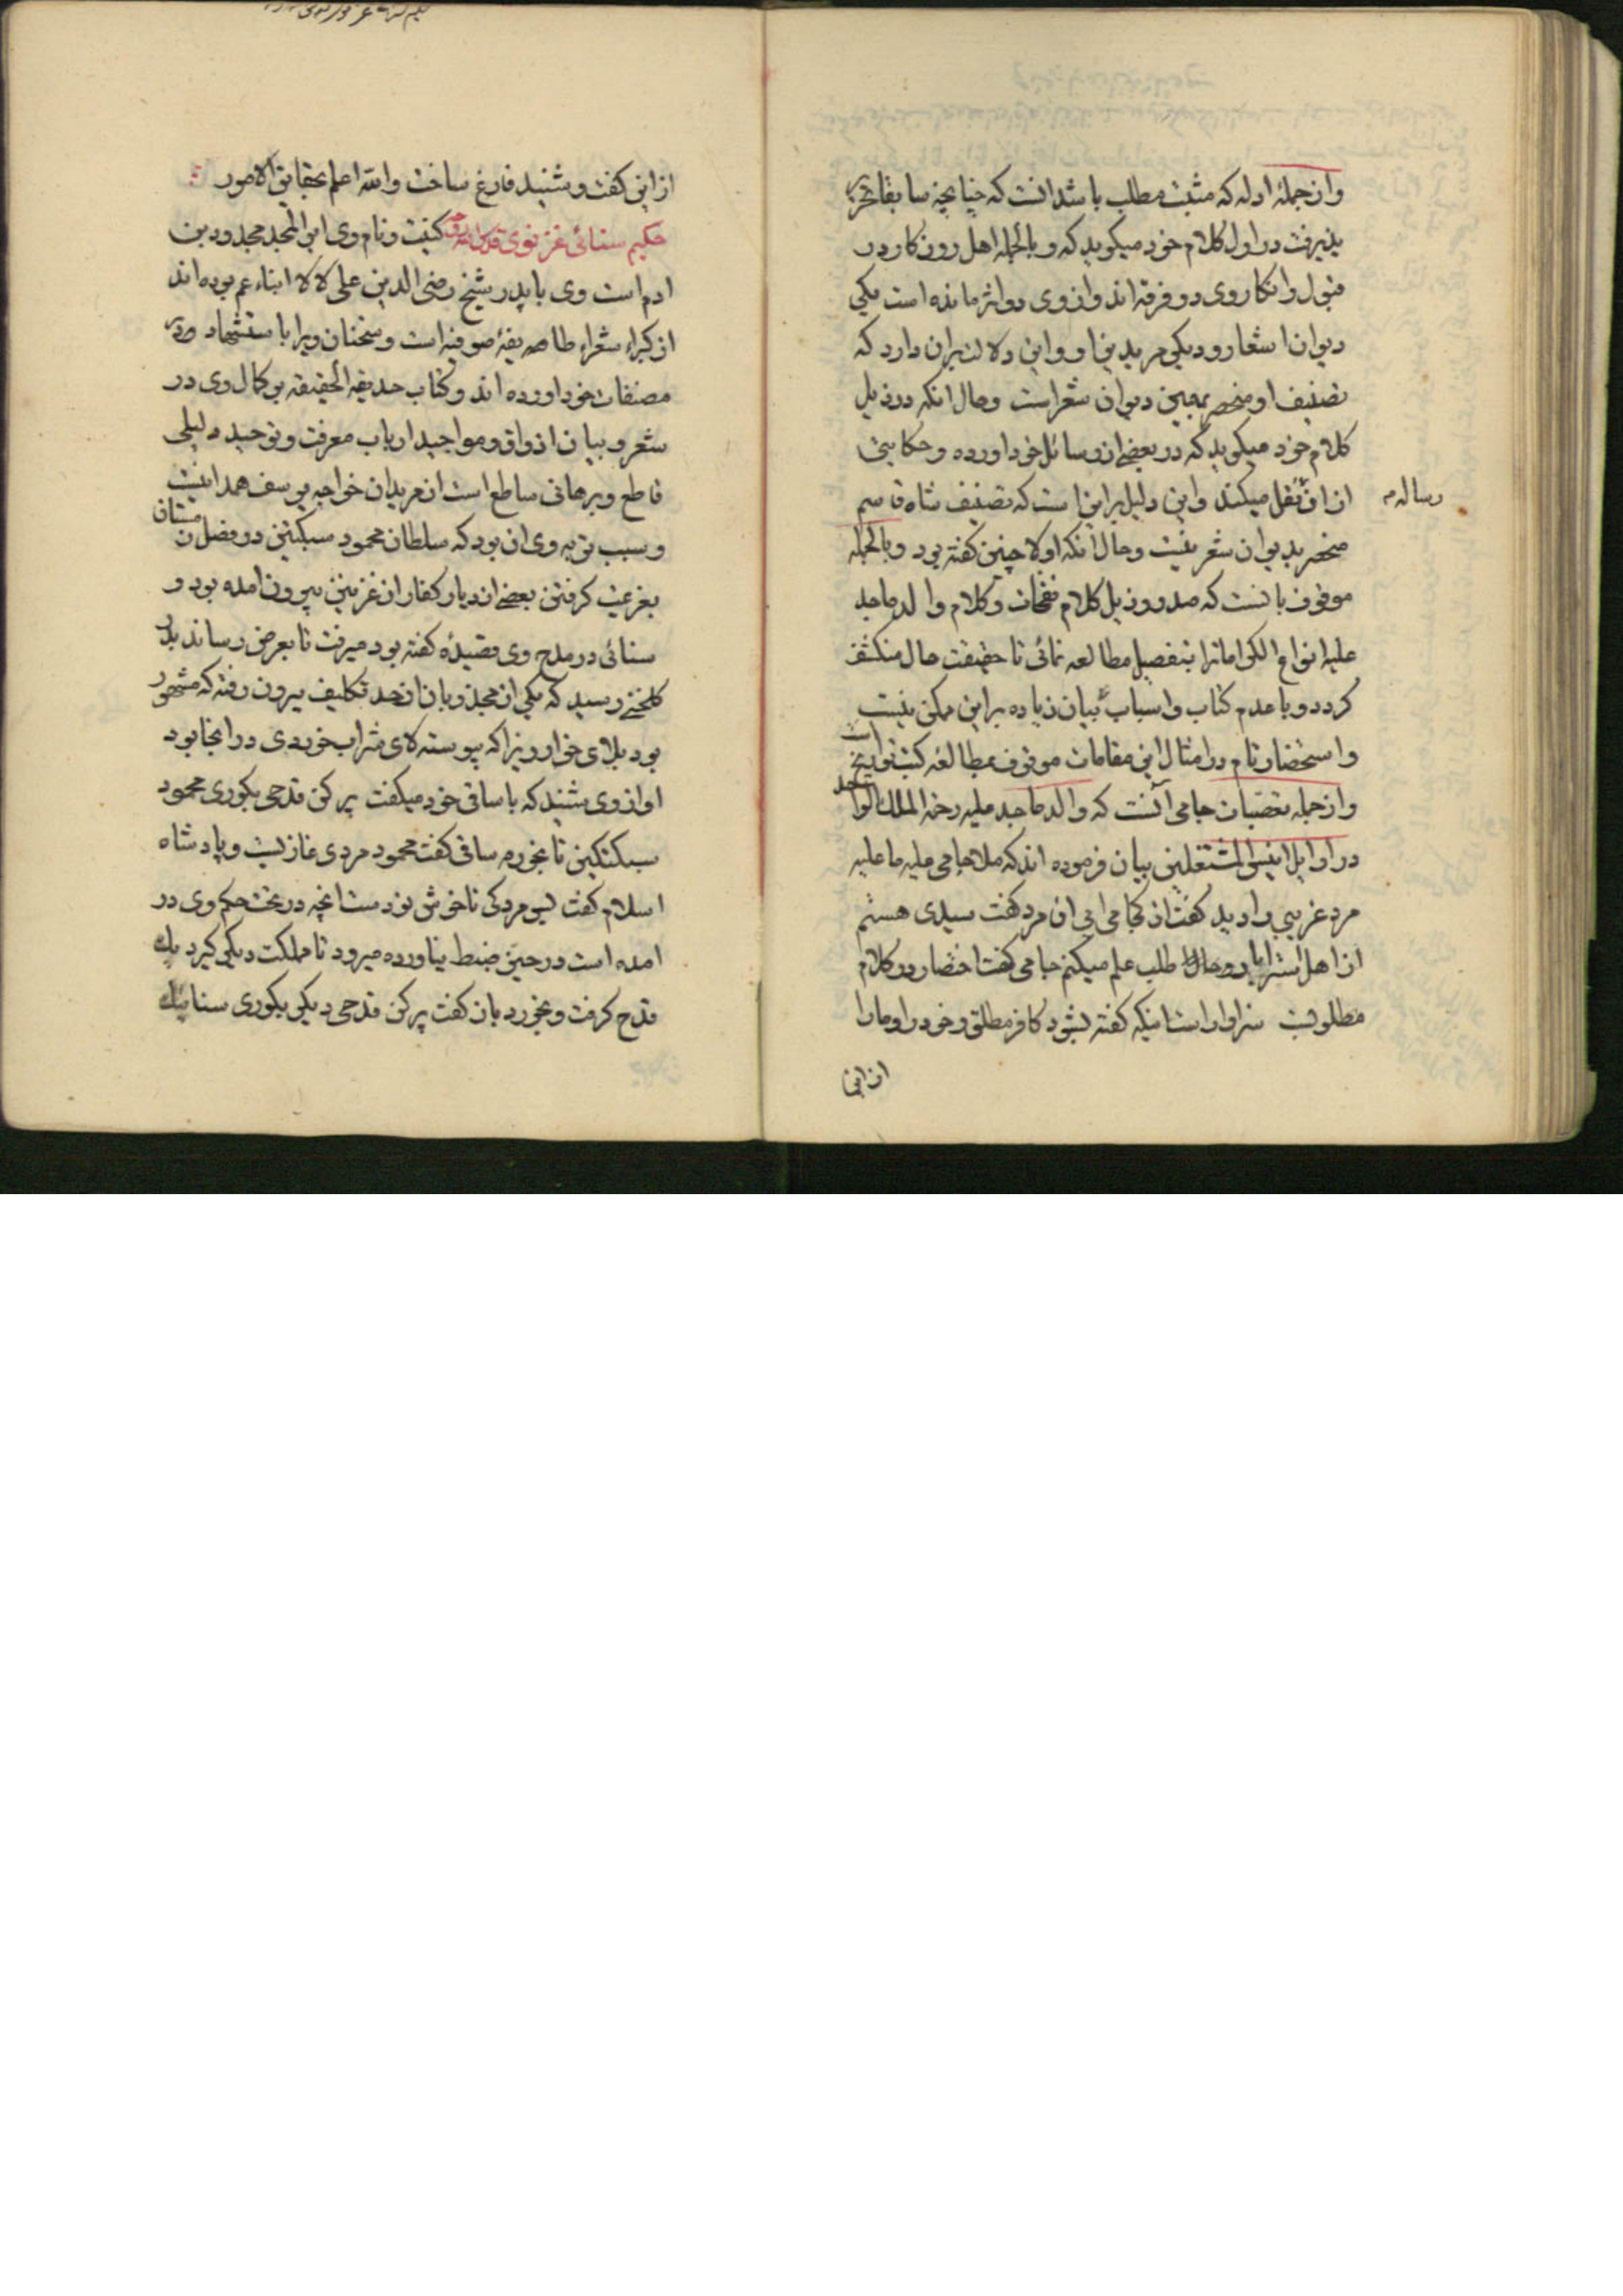 وازجملهٔ ادله که مثبت مطلب باشد انست که چنانچه سابقا تحریر
پذیرفت در اول کلام خود میکوید که و بالجمله اهل روزکار در
قبول و انکار وی دو فرقه اند و از وی دو اثر مانده است یکی
دیوان اشعار و دیکی مریدین او و این دلالت بران دارد که
تصنیف او منحصر بهمین دیوان شعر است و حال انکه در ذیل
کلام خود میکوید که در بعضی از رسائل خود اورده و حکایتی
از ان نقل میکند و این دلیل براینست که تصنیف شاه قاسم
رساله م
منحصر بدیوان شعر نیست و حال انکه اولا چنین کفته بود و بالجمله
موقوف بانست که صدر و ذیل کلام نفحات و کلام والد ماجد
علیه انواع الکرامات را بتفصیل مطالعه نمائی تا حقیقت حال منکشف
کردد و با عدم کتاب و اسباب بیان زیاده براین ممکن نیست
و استحضار تام در امثال این مقامات موقوف بمطالعه کتب تواریخ است
و ازجمله تعصبات جامی آنست که والد ماجد علیه رحمة الملک الواحد
در اوایل انیس المشتغلین بیان فرموده اند که ملا جامی علیه ما علیه
مرد غریبی را دید کفت از کجا می ایی ان مرد کفت سیدی هستم
از اهل استراباد و حال طلب علم میکنم جامی کفت اختصار در کلام
مطلوبست سزاوار است اینکه کفته بشود کافر مطلق و خود را و ما را
از این
از این کفت و شنید فارغ ساخت والله اعلم بحقایق الامور
حکیم سنائی غزنوی قدس الله روحه کنیت و نام وی ابو المجد مجدود بن
ادم است وی با پدر شیخ رضی الدین علی لالا ابناء عم بوده اند
از کبراء شعراء طایفهٔ صوفیه است و سخنان ویرا باستشهاد در
مصنفات خود اورده اند و کتاب حدیقة الحقیقه بر کمال وی در
شعر و بیان اذواق و مواجید ارباب معرفت و توحید دلیلی
قاطع و برهانی ساطع است از مریدان خواجه یوسف همدانیست
و سبب توبه وی ان بود که سلطان محمود سبکتکین در فصل زمستان
بعزیمت کرفتن بعضی از دیار کفار از غزنین بیرون امده بود و
سنائی در مدح وی قصیدهٔ کفته بود میرفت تا بعرض رساند بدر
کلخنی رسید که یکی از مجذوبان از حد تکلیف بیرون رفته که مشهور
بود بلای خوار زیرا که پیوسته لای شراب خوردی در انجا بود
اوازوی شنید که با ساقی خود میکفت پر کن قدحی بکوری محمود
سبکتکین تا بخورم ساقی کفت محمود مردی غازیست و پادشاه
اسلام کفت بس مردکی ناخوشنودست انچه در تحت حکم وی در
امده است در حیز ضبط نیاورده میرود تا مملکت دیکر کیرد یک
قدح کرفت و بخورد باز کفت پر کن قدحی دیکر بکوری سنائیک